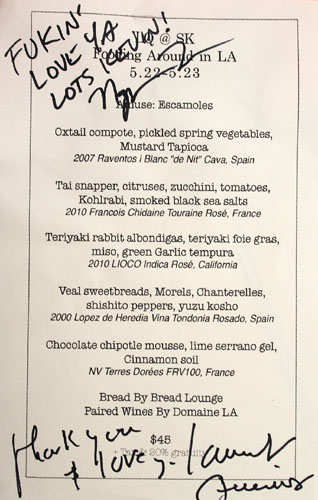 FUKIN'
LOVE YA
LOTS KEVIN!
@ SK
Fooling Around in LA
5.22-5.23
Amuse: Escamoles
Oxtail compote, pickled spring vegetables,
Mustard Tapioca
2007 Raventos i Blanc "de Nit" Cava, Spain
Tai snapper, citruses, zucchini, tomatoes,
Kohlrabi, smoked black sea salts
2010 Francois Chidaine Touraine Rosé, France
Teriyaki rabbit albondigas, teriyaki foie gras,
miso, green Garlic tempura
2010 LIOCO Indica Rosé, California
Veal sweetbreads, Morels, Chanterelles,
shishito peppers, yuzu kosho
2000 Lopez de Heredia Vina Tondonia Rosado, Spain
Chocolate chipotle mousse, lime serrano gel,
Cinnamon soil
NV Terres Dorées FRV100, France
Bread By Bread Lounge
Paired Wines By Domaine LA
$45
+ Tax & 20% gratuity
thank you
& love